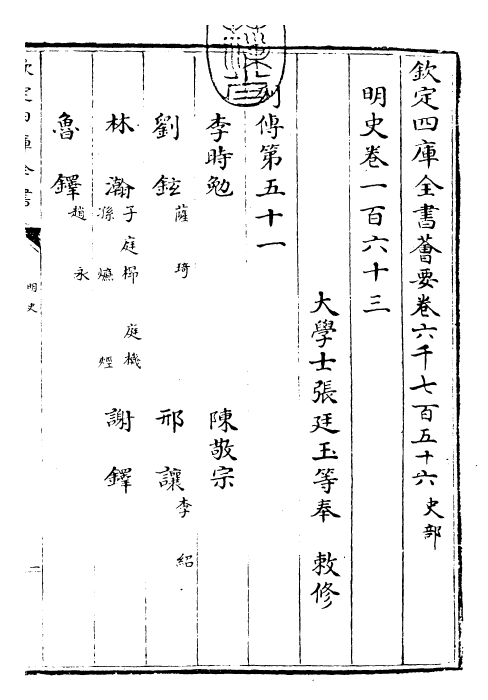 欽定四庫全書薈要卷六千七百五十六 史部
明史卷一百六十三
大學士張廷玉等奉 敕修
列傳第五十一
李時勉 陳敬宗
劉鉉 薩琦 邢讓 李紹
林瀚 子庭㭿 庭機 孫燫 烴 謝鐸
魯鐸 趙永
欽定四庫全書
明史
一